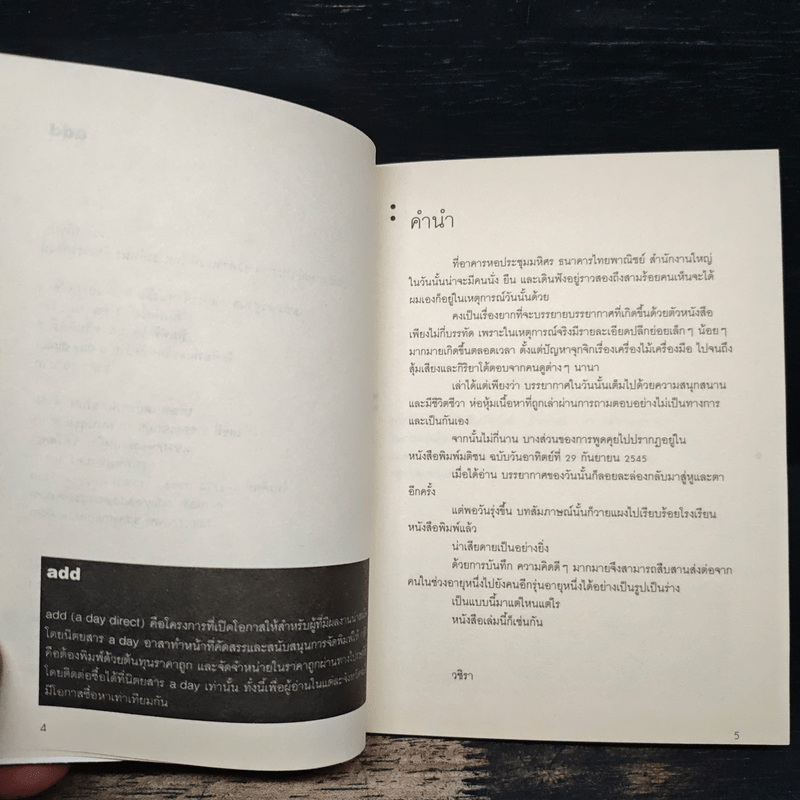 add
add (a day direct) คือโครงการที่เปิดโอกาสให้สำหรับผู้ที่มีผลงานน่าสนใจ
โดยนิตยสาร a day อาสาทำหน้าที่คัดสรรและสนับสนุนการจัดพิมพ์ให้
คือต้องพิมพ์ด้วยต้นทุนราคาถูก และจัดจำหน่ายในราคาถูกผ่านทาง
โดยติดต่อซื้อได้ที่นิตยสาร a day เท่านั้น ทั้งนี้เพื่อผู้อ่านในแต่ละจังหวัด
มีโอกาสซื้อหาเท่าเทียมกัน
4
คำนำ
ที่อาคารหอประชุมมหิศร ธนาคารไทยพาณิชย์ สำนักงานใหญ่
ในวันนั้นน่าจะมีคนนั่ง ยืน และเดินฟังอยู่ราวสองถึงสามร้อยคนเห็นจะได้
ผมเองก็อยู่ในเหตุการณ์วันนั้นด้วย
คงเป็นเรื่องยากที่จะบรรยายบรรยากาศที่เกิดขึ้นด้วยตัวหนังสือ
เพียงไม่กี่บรรทัด เพราะในเหตุการณ์จริงมีรายละเอียดปลีกย่อยเล็กๆ น้อยๆ
มากมายเกิดขึ้นตลอดเวลา ตั้งแต่ปัญหาจุกจิกเรื่องเครื่องไม้เครื่องมือ ไปจนถึง
สุ้มเสียงและกิริยาโต้ตอบจากคนดูต่างๆ นานา
เล่าได้แต่เพียงว่า บรรยากาศในวันนั้นเต็มไปด้วยความสนุกสนาน
และมีชีวิตชีวา ห่อหุ้มเนื้อหาที่ถูกเล่าผ่านการถามตอบอย่างไม่เป็นทางการ
และเป็นกันเอง
จากนั้นไม่กี่นาน บางส่วนของการพูดคุยไปปรากฏอยู่ใน
หนังสือพิมพ์มติชน ฉบับวันอาทิตย์ที่ 29 กันยายน 2545
เมื่อได้อ่าน บรรยากาศของวันนั้นก็ลอยละล่องกลับมาสู่หูและตา
อีกครั้ง
แต่พอวันรุ่งขึ้น บทสัมภาษณ์นั้นก็วายแผงไปเรียบร้อยโรงเรียน
หนังสือพิมพ์แล้ว
น่าเสียดายเป็นอย่างยิ่ง
ด้วยการบันทึก ความคิดดีๆ มากมายจึงสามารถสืบสานส่งต่อจาก
คนในช่วงอายุหนึ่งไปยังคนอีกรุ่นอายุหนึ่งได้อย่างเป็นรูปเป็นร่าง
เป็นแบบนี้มาแต่ไหนแต่ไร
หนังสือเล่มนี้ก็เช่นกัน
วชิรา
5